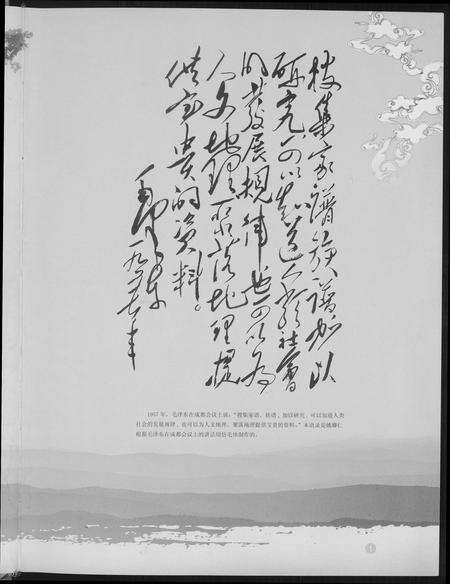 搜集家譜族谱加以
研究可以知道人类社會
的发展规律也可以为
人文地理聚落地理提
供宝贵的资料。
毛泽东
一九五七年
1957 年，毛泽东在成都会议上说：“搜集家谱、族谱，加以研究，可以知道人类
社会的发展规律，也可以为人文地理、聚落地理提供宝贵的资料。”本语录是姚卿仁
根据毛泽东在成都会议上的讲话用仿毛体制作的。
1